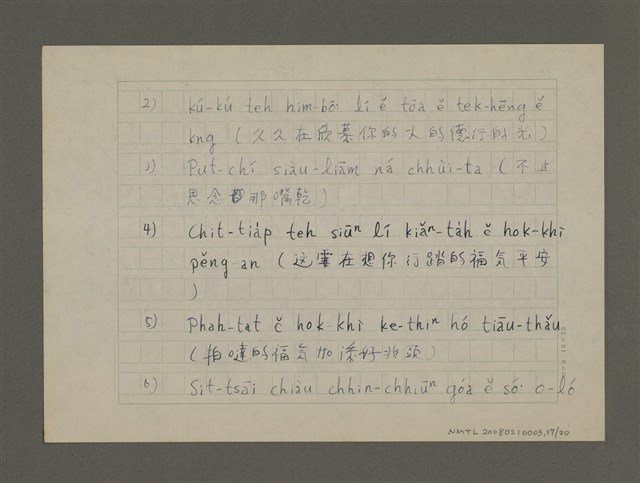 2) kú-kú teh him-bō͘ lí ě tōa ě tek-hēng ě
kng (久久在欣慕你的大的德行的光)
3) Put-chí siàu-liām ná chhùi-ta (不止
思念那嘴乾)
4) Chit-tiáp teh siūⁿ lí kiǎⁿ-ta̍h ě hok-khì
pěng-an (这霎在想你行踏的福気平安
)
5) Phah-tat ě hok-khì ke-thiⁿ hó tiāu-thǎu
(拍噠的福気加添好兆頭)
6) Sit-tsāi chiàu chhin-chhiūⁿ góa ě só͘ o-ló
NMTL 20080210003,17/20